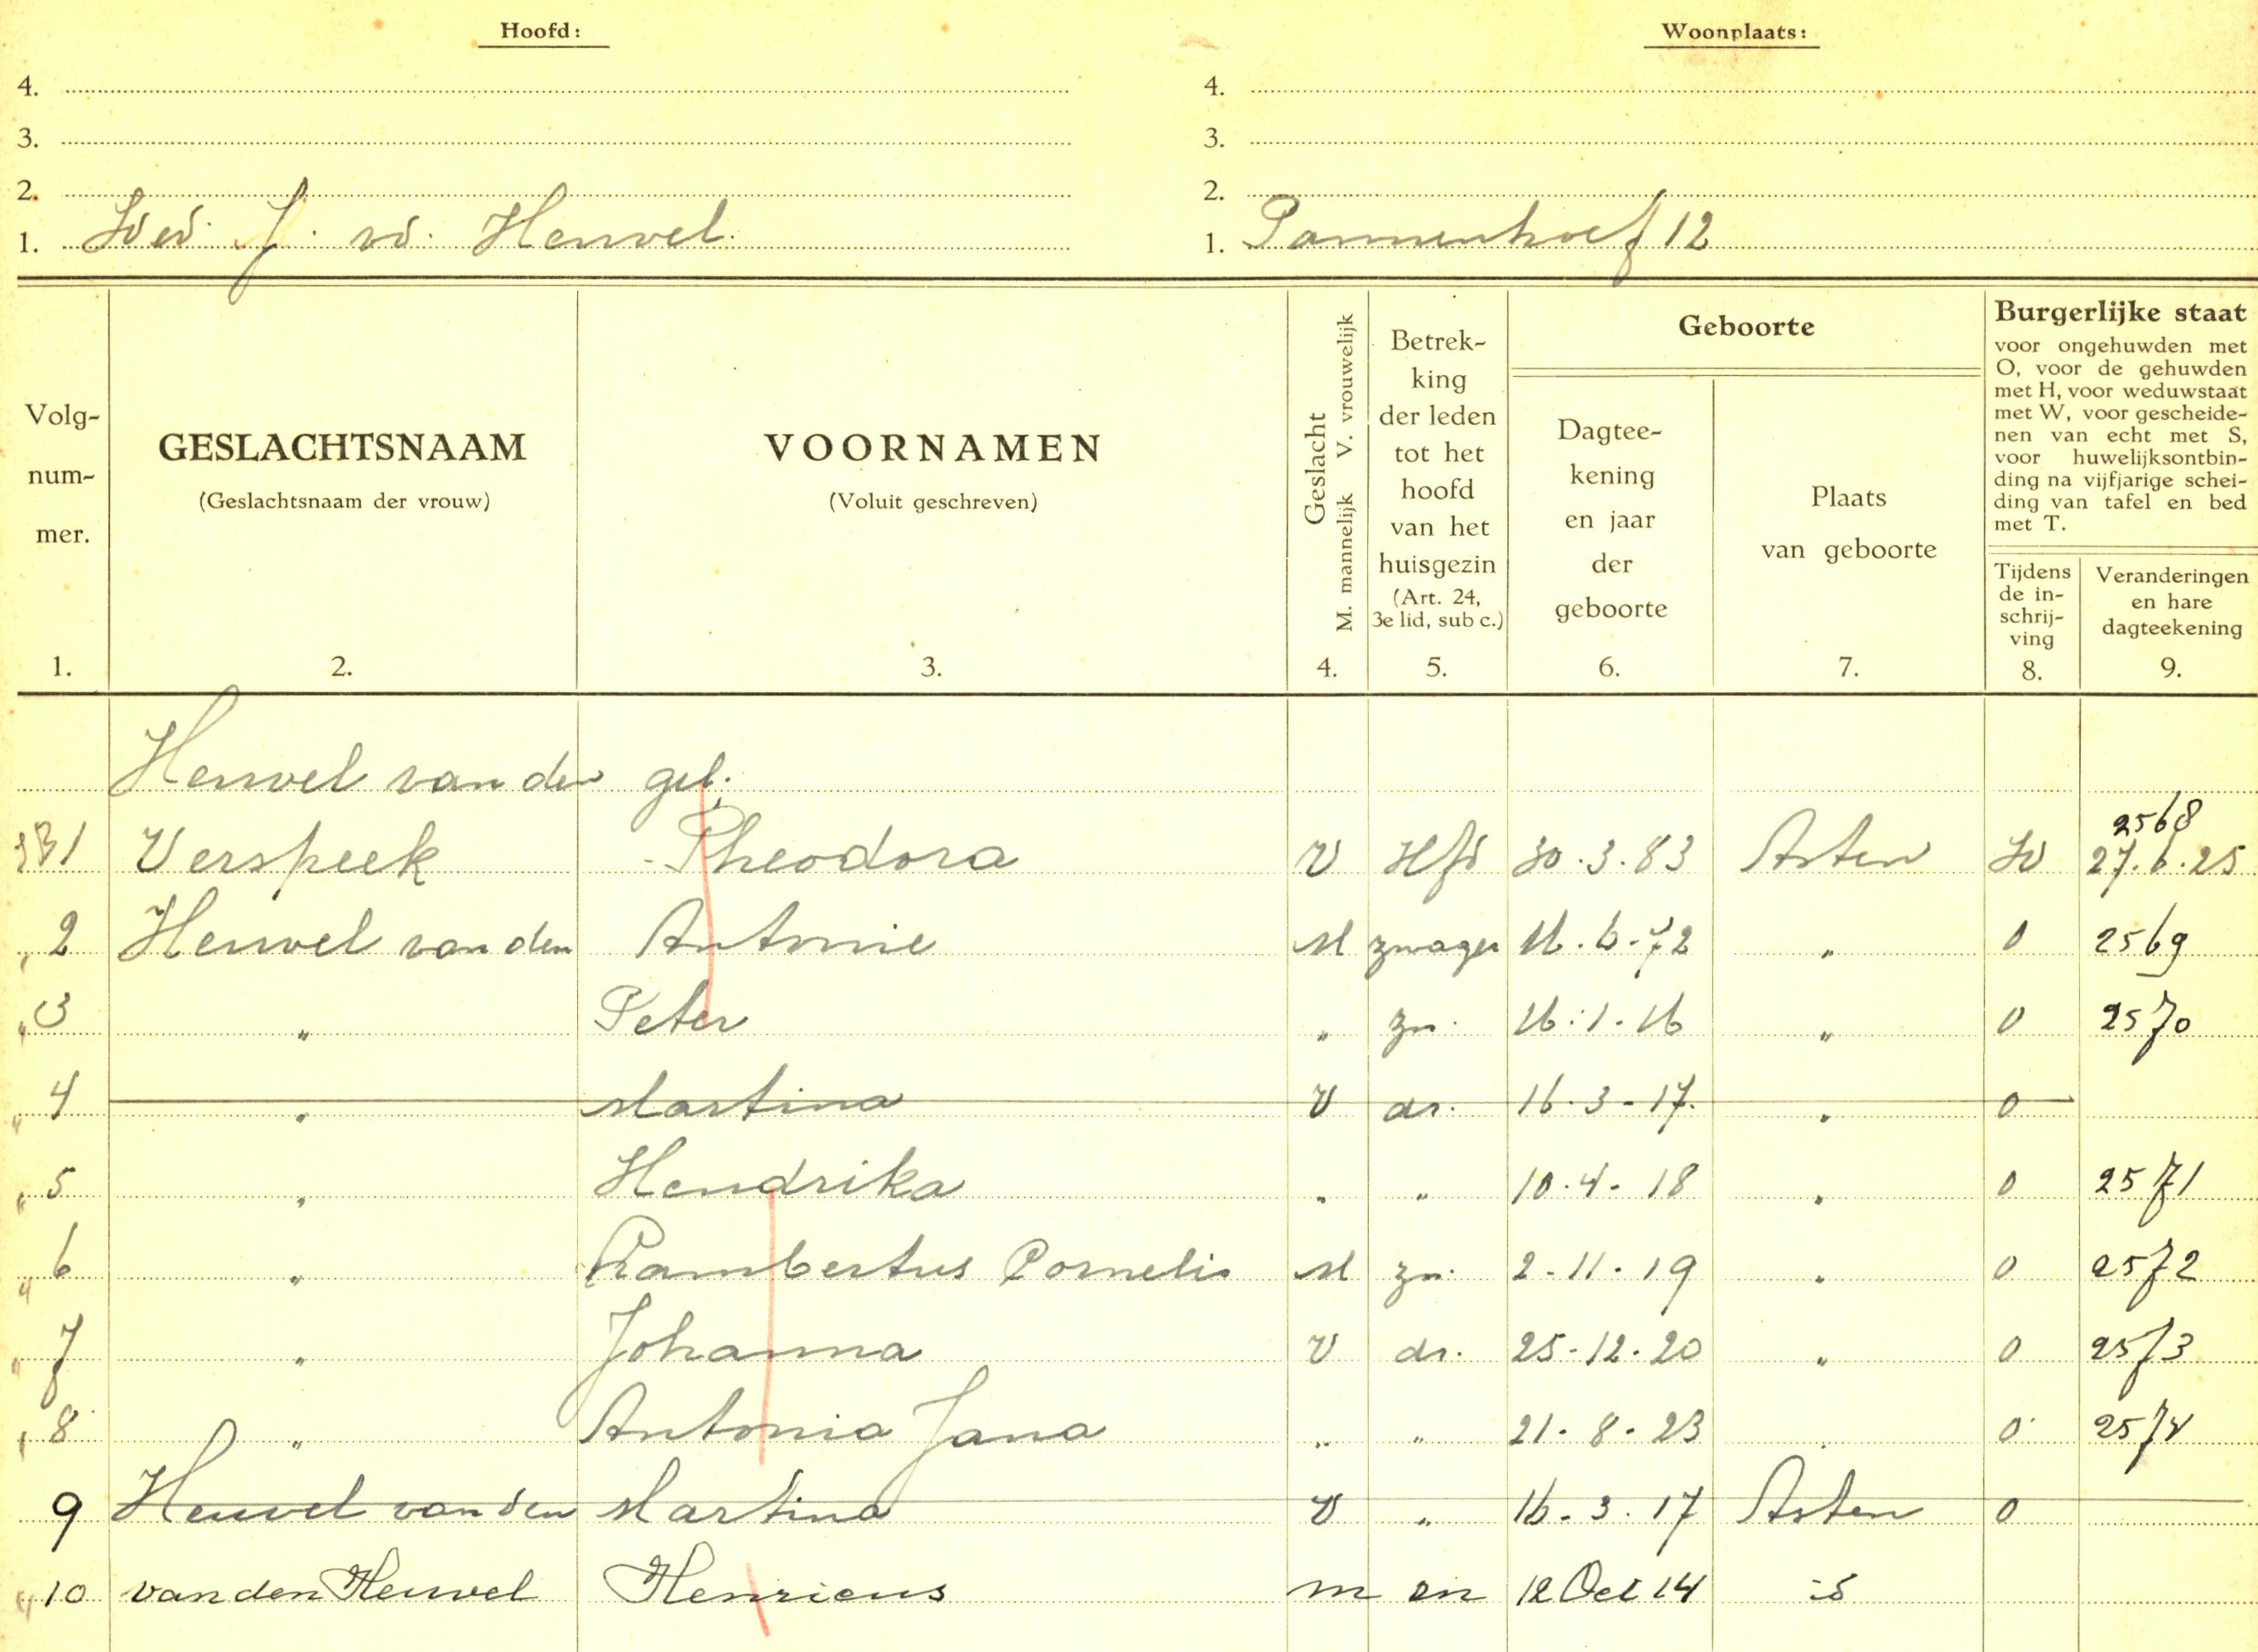 Hoofd: Woonplaats:
4. 4.
3. 3.
2. 2.
1. Wed. J. vd. Heuvel. 1. Pannenhoef 12
Volg-
num-
mer.
1.
GESLACHTSNAAM
(Geslachtsnaam der vrouw)
2.
VOORNAMEN
(Voluit geschreven)
3.
Geslacht
M. mannelijk V. vrouwelijk
4.
Betrek-
king
der leden
tot het
hoofd
van het
huisgezin
(Art. 24,
3e lid, sub c.)
5.
Geboorte
Dagtee-
kening
en jaar
der
geboorte
6.
Plaats
van geboorte
7.
Burgerlijke staat
voor ongehuwden met
O, voor de gehuwden
met H, voor weduwstaat
met W, voor gescheide-
nen van echt met S,
voor huwelijksontbin-
ding na vijfjarige schei-
ding van tafel en bed
met T.
Tijdens
de in-
schrij-
ving
8.
Veranderingen
en hare
dagteekening
9.
Heuvel van den geb.
2568
1 Verspeek Theodora V Hfd 30.3.83 Asten W 27.6.25
2 Heuvel van den Antonie M zwager 16.6.72 " O 2569
3 " Peter " zn. 16.1.16 " O 2570
4 " Martina V dr. 16.3-17. " O
5 " Hendrika " " 10.4.18 " O 2571
6 " Lambertus Cornelis M zn. 2-11-19 " O 2572
7 " Johanna V dr. 25-12-20 " O 2573
8 " Antonia Jana " " 21-8-23 " O 2574
9 Heuvel van den Martina V " 16.3.17 Asten O
10 van den Heuvel Henricus m zn 12 Oct 14 id